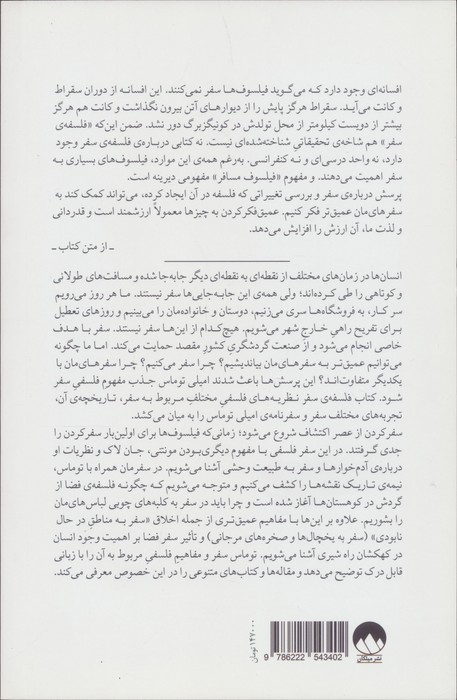 افسانه‌ای وجود دارد که می‌گوید فیلسوف‌ها سفر نمی‌کنند. این افسانه از دوران سقراط
و کانت می‌آید. سقراط هرگز پایش را از دیوارهای آتن بیرون نگذاشت و کانت هم هرگز
بیشتر از دویست کیلومتر از محل تولدش در کونیگزبرگ دور نشد. ضمن این‌که «فلسفه‌ی
سفر» هم شاخه‌ی تحقیقاتیِ شناخته‌شده‌ای نیست. نه کتابی درباره‌ی فلسفه‌ی سفر وجود
دارد، نه واحد درسی‌ای و نه کنفرانسی. به‌رغم همه‌ی این موارد، فیلسوف‌های بسیاری به
سفر اهمیت می‌دهند. و مفهوم «فیلسوف مسافر» مفهومی دیرینه است.
پرسش درباره‌ی سفر و بررسی تغییراتی که فلسفه در آن ایجاد کرده، می‌تواند کمک کند به
سفرهای‌مان عمیق‌تر فکر کنیم. عمیق‌فکرکردن به چیزها معمولاً ارزشمند است و قدردانی
و لذت ما، آن ارزش را افزایش می‌دهد.
ـ از متن کتاب ـ
انسان‌ها در زمان‌های مختلف از نقطه‌ای به نقطه‌ای دیگر جابه‌جا شده و مسافت‌های طولانی
و کوتاهی را طی کرده‌اند؛ ولی همه‌ی این جابه‌جایی‌ها سفر نیستند. ما هر روز می‌رویم
سر کار، به فروشگاه‌ها سری می‌زنیم، دوستان و خانواده‌مان را می‌بینیم و روزهای تعطیل
برای تفریح راهی خارج شهر می‌شویم. هیچ‌کدام از این‌ها سفر نیستند. سفر با هدف
خاصی انجام می‌شود و از صنعت گردشگریِ کشورِ مقصد حمایت می‌کند. اما ما چگونه
می‌توانیم عمیق‌تر به سفرهای‌مان بیاندیشیم؟ چرا سفر می‌کنیم؟ چرا سفرهای‌مان با
یکدیگر متفاوت‌اند؟ این پرسش‌ها باعث شدند امیلی توماس جذب مفهوم فلسفیِ سفر
شود. کتاب فلسفه‌ی سفر نظریه‌های فلسفیِ مختلفِ مربوط به سفر، تاریخچه‌ی آن،
تجربه‌های مختلف سفر و سفرنامه‌ی امیلی توماس را به میان می‌کشد.
سفرکردن از عصر اکتشاف شروع می‌شود؛ زمانی‌که فیلسوف‌ها برای اولین‌بار سفرکردن را
جدی گرفتند. در این سفر فلسفی با مفهوم دیگری‌بودن مونتنی، جان لاک و نظریات او
درباره‌ی آدم‌خوارها و سفر به طبیعت وحشی آشنا می‌شویم. در سفرمان همراه با توماس،
نیمه‌ی تاریک نقشه‌ها را کشف می‌کنیم و متوجه می‌شویم که چگونه فلسفه‌ی فضا از
گردش در کوهستان‌ها آغاز شده است و چرا باید در سفر به کلبه‌های چوبی لباس‌های‌مان
را بشوریم. علاوه بر این‌ها با مفاهیم عمیق‌تری از جمله اخلاق «سفر به مناطقِ در حال
نابودی» (سفر به یخچال‌ها و صخره‌های مرجانی) و تأثیر سفر فضا بر اهمیت وجود انسان
در کهکشان راه شیری آشنا می‌شویم. توماس سفر و مفاهیم فلسفیِ مربوط به آن را با زبانی
قابل درک توضیح می‌دهد و مقاله‌ها و کتاب‌های متنوعی را در این خصوص معرفی می‌کند.
۱۴۷۰۰۰ تومان
9 786222 543402
نشر میلکان